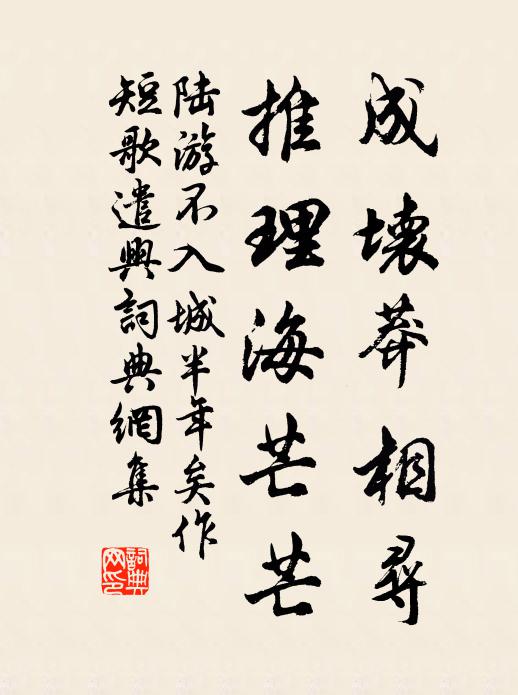 成壞莽相尋
推理海芒芒
陆游不入城半年矣作
短歌遣興詞典網集
詞典
网印